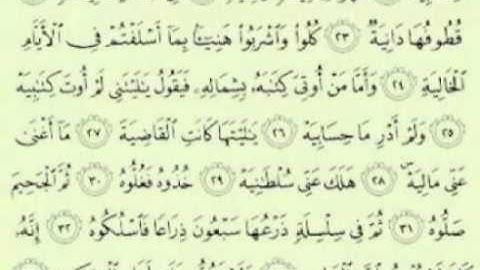 قُطُوفُهَا دَانِيَةٌ ٢٣ كُلُوا۟ وَٱشْرَبُوا۟ هَنِيٓـًٔۢا بِمَآ أَسْلَفْتُمْ فِى ٱلْأَيَّامِ
ٱلْخَالِيَةِ ٢٤ وَأَمَّا مَنْ أُوتِىَ كِتَٰبَهُۥ بِشِمَالِهِۦ فَيَقُولُ يَٰلَيْتَنِى لَمْ أُوتَ كِتَٰبِيَهْ
٢٥ وَلَمْ أَدْرِ مَا حِسَابِيَهْ ٢٦ يَٰلَيْتَهَا كَانَتِ ٱلْقَاضِيَةَ ٢٧ مَآ أَغْنَىٰ
عَنِّى مَالِيَهْ ۜ ٢٨ هَلَكَ عَنِّى سُلْطَٰنِيَهْ ٢٩ خُذُوهُ فَغُلُّوهُ ٣٠ ثُمَّ ٱلْجَحِيمَ
صَلُّوهُ ٣١ ثُمَّ فِى سِلْسِلَةٍ ذَرْعُهَا سَبْعُونَ ذِرَاعًا فَٱسْلُكُوهُ ٣٢ إِنَّهُۥ